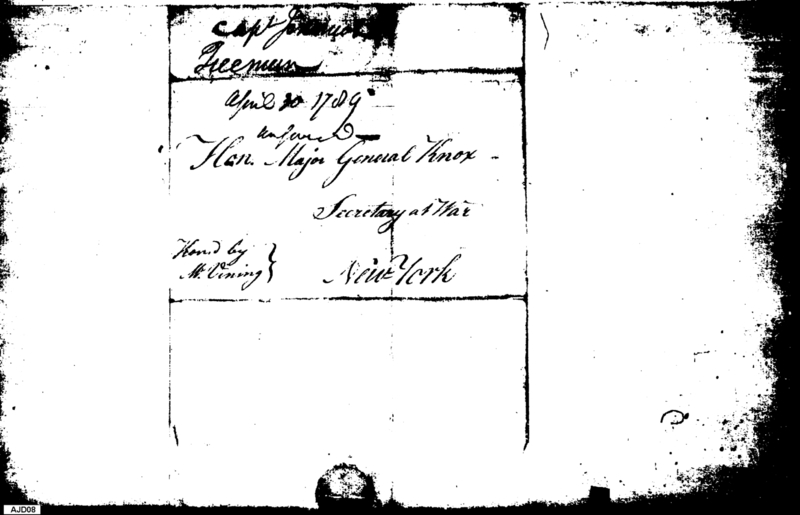 Capt
Freeman
April 30 1789
Answered
Hon. Major General Knox
Secretary at War
Hond by
Mr. Vining
New York
AJD08